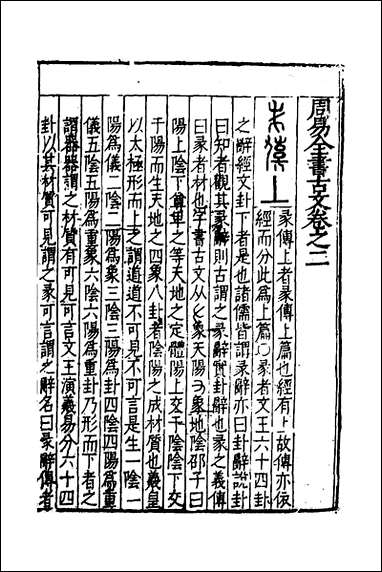 周易全書古文卷之二
彖傳上 彖傳上者彖傳上篇也經有上下故傳亦依
經而分此為上篇〇彖者文王六十四卦
之辭經文卦下者是也諸儒皆謂彖辭亦曰卦辭說卦
曰知者觀其彖辭則古謂之彖辭實卦辭也彖之義傳
曰彖者材也字書古文从 象天陽 象地陰邵子曰
陽上陰下尊卑之等天地之定體陽上交于陰陰下交
于陽而生天地之四象八卦者陰陽之成材質也羲皇
以太極形而上之謂道道不可見不可言是生一陰一
陽為儀二陰二陽為象三陰三陽為卦四陰四陽為重
儀五陰五陽為重象六陰六陽為重卦乃形而下者之
謂器器謂之材質有可見可言文王演羲易分六十四
卦以其材質可見謂之彖可言謂之辭名曰彖辭傳者